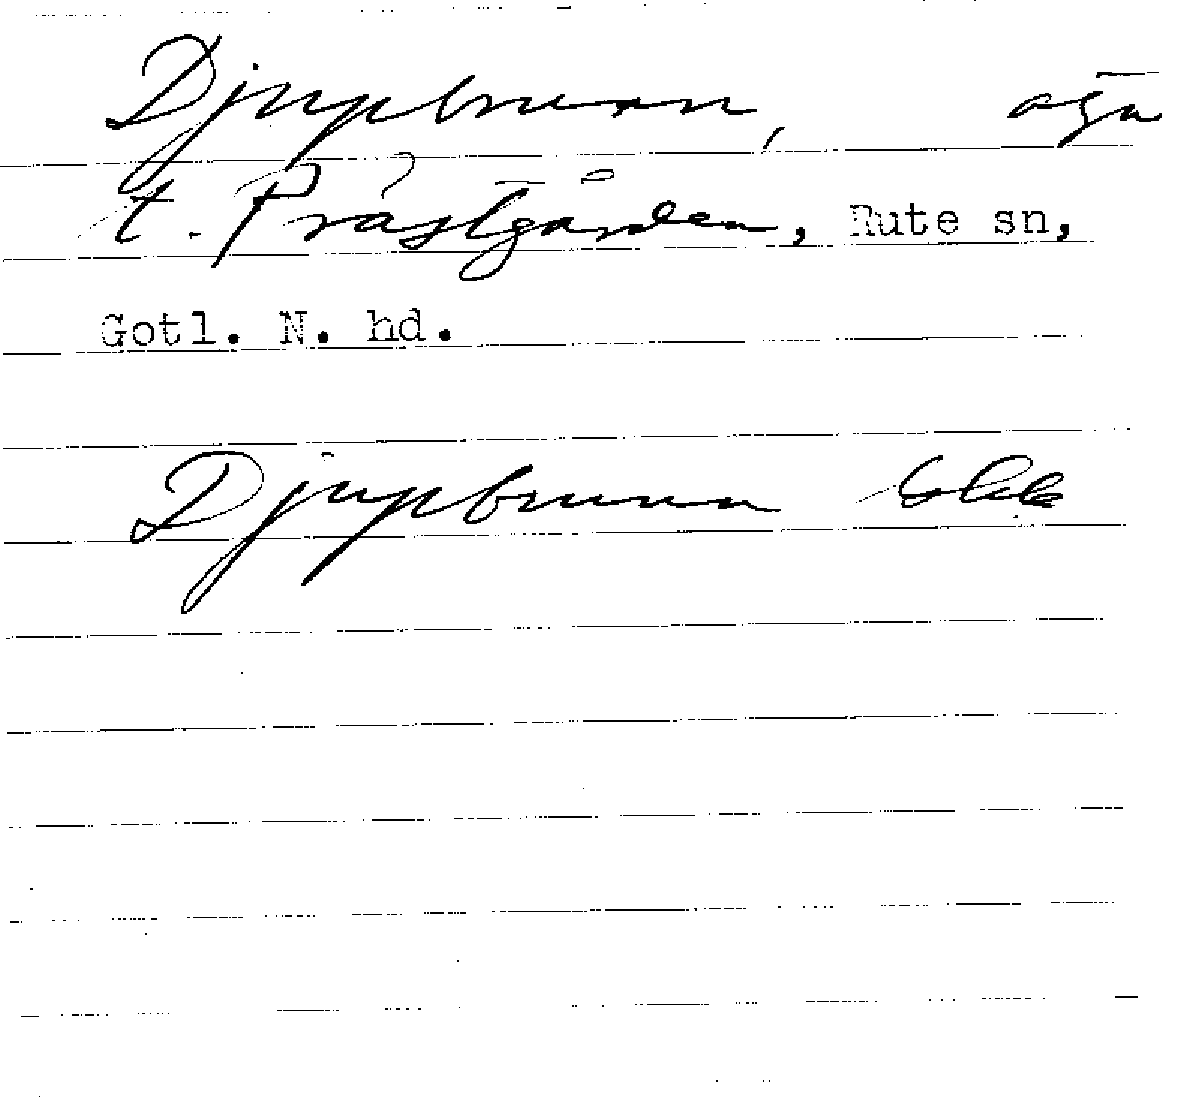 Djupbrunn, äga
t. Prästgården, Rute sn,
Gotl. N. hd.
Djupbrunn